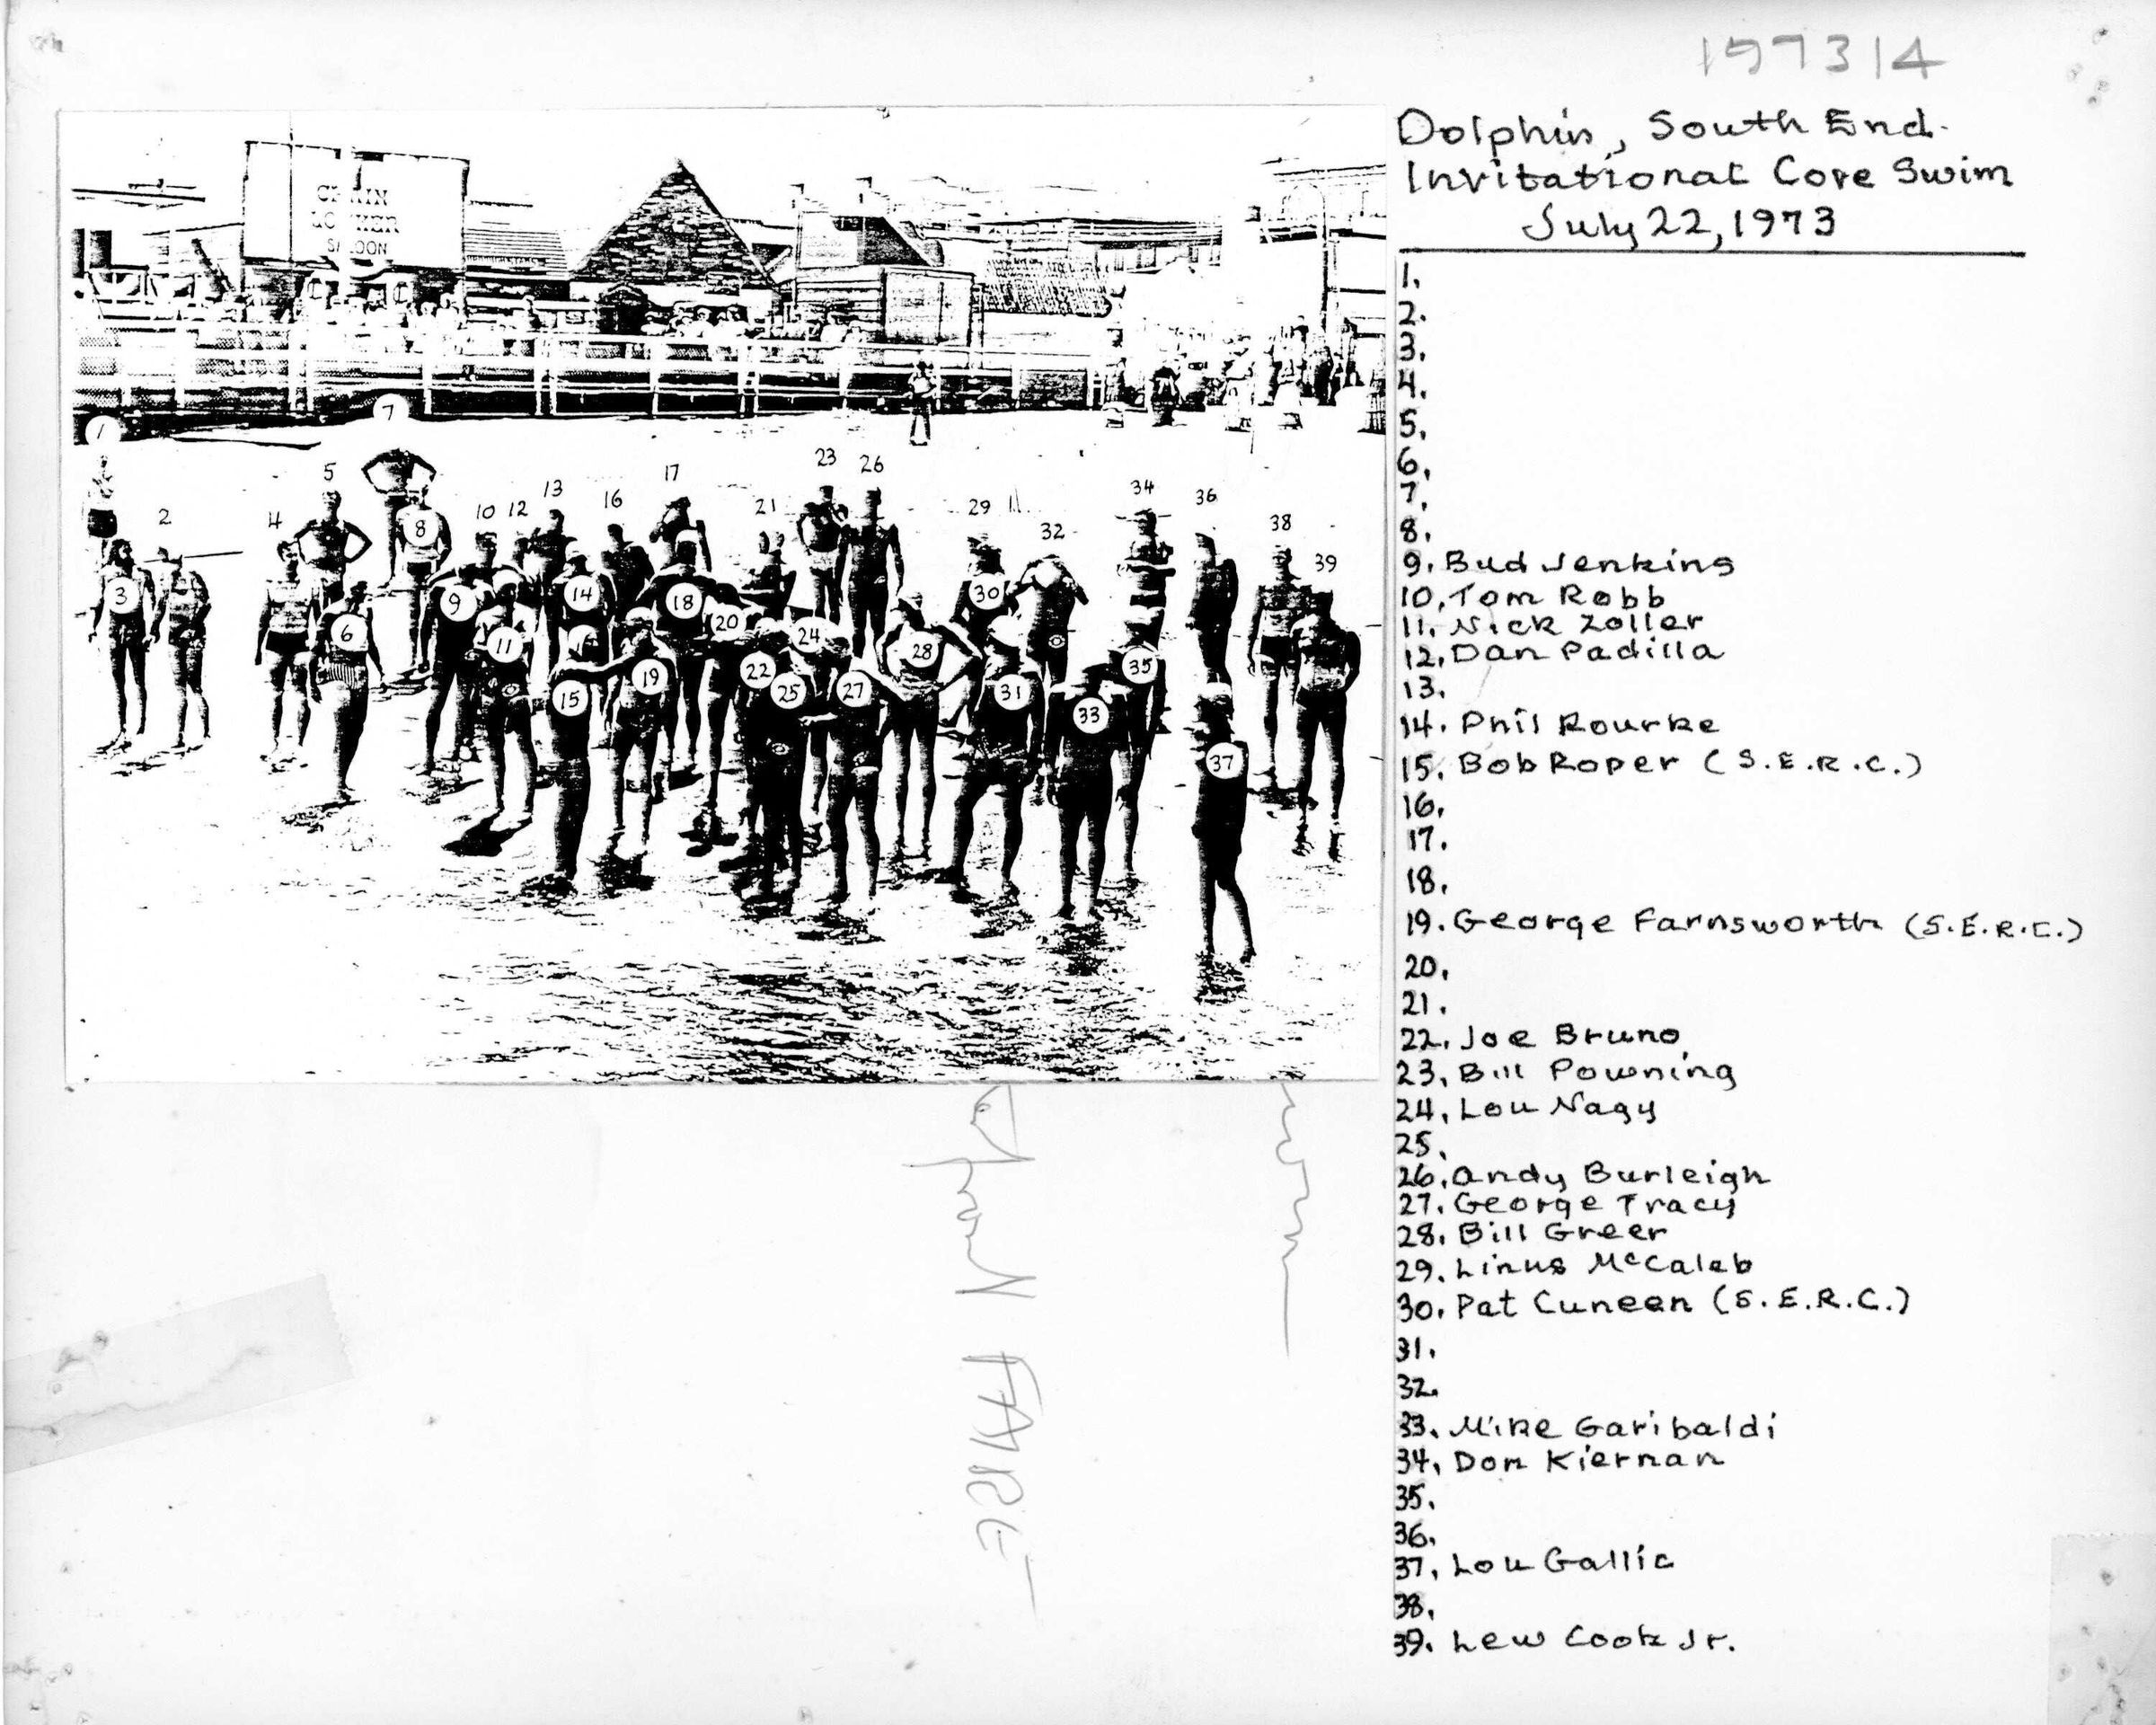 197314
Dolphin, South End
Invitational Cove Swim
July 22, 1973
1.
2.
3.
4.
5.
6.
7.
8.
9. Bud Jenkins
10. Tom Robb
11. Nick Zoller
12. Dan Padilla
13.
14. Phil Rourke
15. Bob Roper (S.E.R.C.)
16.
17.
18.
19. George Farnsworth (S.E.R.C.)
20.
21.
22. Joe Bruno
23. Bill Powning
24. Lou Nagy
25.
26. Andy Burleigh
27. George Tracy
28. Bill Greer
29. Linus McCaleb
30. Pat Cuneen (S.E.R.C.)
31.
32.
33. Mike Garibaldi
34. Don Kiernan
35.
36.
37. Lou Gallic
38.
39. Lew Cook Jr.
SALOON
7
1
23 26
5 17
13 34
16 36
2 4 10 12 21 29
8 32 38
39
3 9 14 18 30
6 11 20 24
28
15 19 22 25 27 31 35
33
37